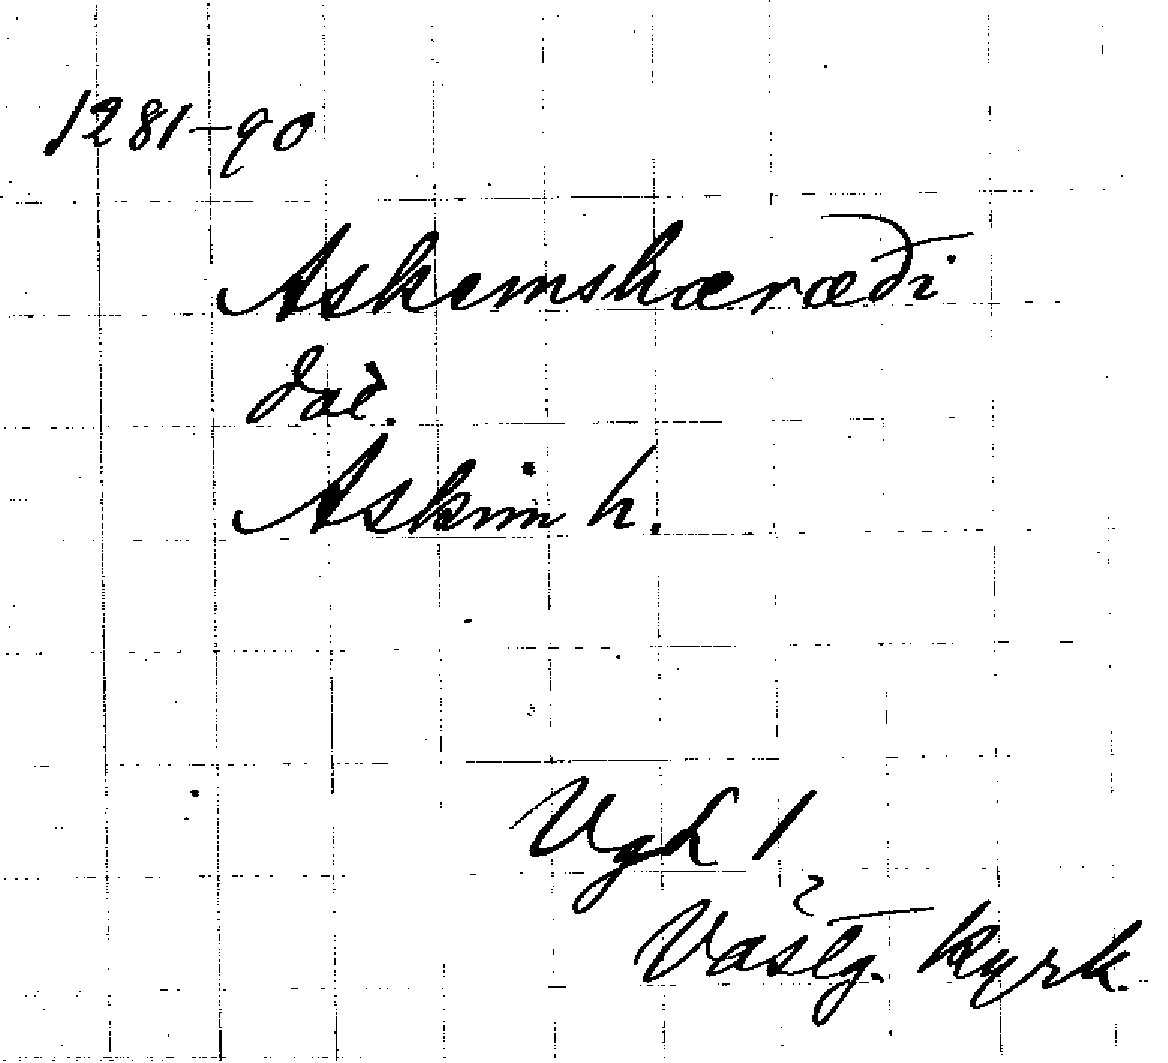 1281-90
Askemshæræði
dat.
Askim h.
VgL 1
Västg. kyrk.